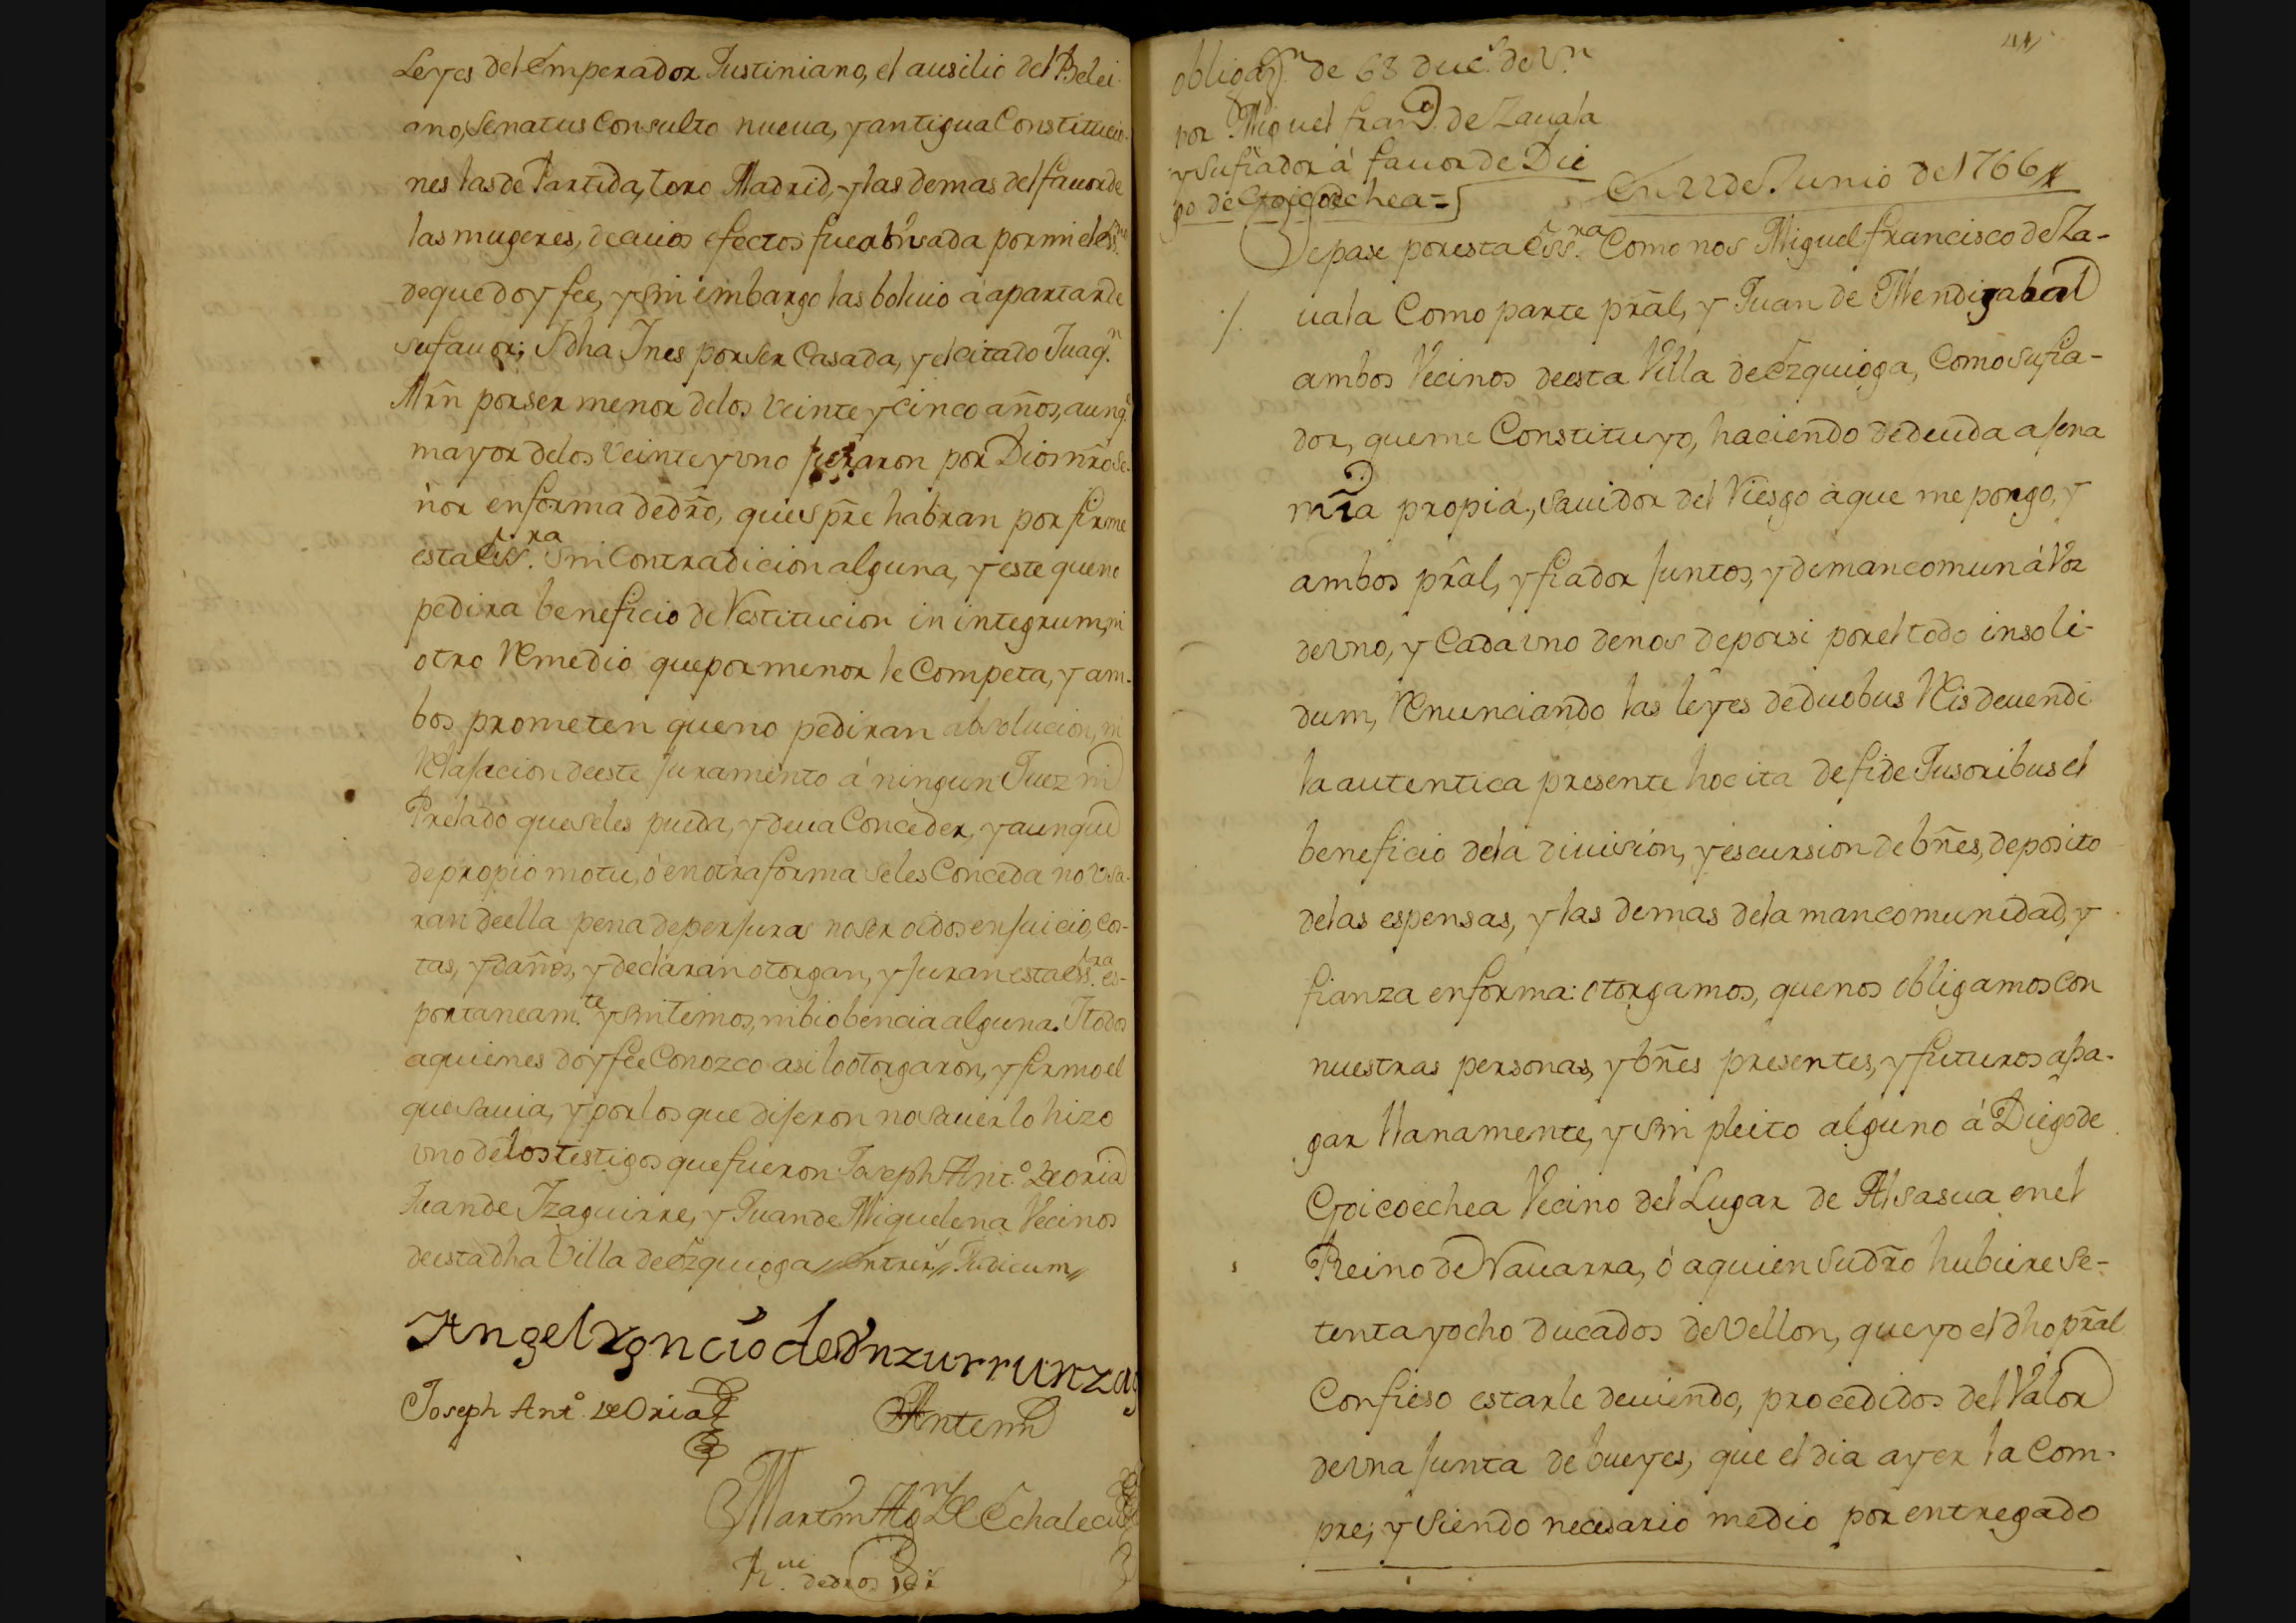 Leyes del Emperador Justiniano, el ausilio del Belei
ano, Senatus Consulto nueua, y antigua Constitucio-
nes las de Partida, toro Madrid, y las demas del fauor de
las mugeres, de cuios efectos fue abisada por mi el ess.no
de que doy fee, y sin embargo las boluio à apartar de
su fauor; Y dha Ines por ser Casada, y el citado Juaq.n
Mrñ por ser menor de los veinte y cinco años, aunq.e
mayor de los veinte y vno juraron por Dios nrõ Se-
ñor en forma de drõ, que sprẽ habran por firme
esta ess.ra sin Contradicion alguna, y este que no
pedira beneficio de Restitucion in integrum, ni
otro Remedio que por menor le Competa, y am-
bos prometen que no pediran absolucion, ni
Relajacion de este juramento à ningun Juez ni
Prelado que se les pueda, y deua Conceder, y aunque
de propio motu, ò en otra forma se les Conceda no vsa-
ran de ella pena de perjuras no ser oidos en juicio, cos-
tas, y daños, y declaran otorgan, y juran esta ess.ra es-
pontaneam.te y sin temor, ni biobencia alguna. Y todos
a quienes doy fee Conozco asi lo otorgaron, y firmo el
que sauia, y por los que dijeron no sauer lo hizo
vno de los testigos que fueron Joseph Ant.o de Oria
Juan de Yzaguirre, y Juan de Miguelena Vecinos
de esta dha Villa de Ezquioga // Entrer.s // Judicum //
Angel Ygncio de Vnzurrunzag
Joseph Ant.o de Oria
Ante mi
Martin Ag.n de Echalecu
obligaz.n de 68 duc.s de V.n
por Miguel fran.co de Zauala
y su fiador à fauor de Die
go de Goicoechea =
En 22 de Junio de 1766 //
Sepase por esta ess.ra Como nos Miguel francisco de Za-
uala Como parte prãl, y Juan de Mendizabal
ambos Vecinos de esta Villa de Ezquioga, Como su fia-
dor, que me Constituyo, haciendo de deuda ajena
mĩa propia, sauidor del Riesgo à que me pongo, y
ambos prãl, y fiador juntos, y de mancomun à Voz
de vno, y Cada vno de nos de por si por el todo insoli-
dum, Renunciando las leyes de duobus Reis deuendi
la autentica presente hoc ita de fide Jusoribus el
beneficio de la diuision, y escursion de bñes, deposito
de las espensas, y las demas de la mancomunidad, y
fianza en forma: otorgamos, que nos obligamos con
nuestras personas, y bñes presentes, y futuros a pa-
gar llanamente, y sin pleito alguno à Diego de
Goicoechea Vecino del Lugar de Alsasua en el
Reino de Nauarra, ò a quien su drõ hubiere se-
tenta y ocho ducados de Vellon, que yo el dho prãl
Confieso estarle deuiendo, procedidos del Valor
de vna junta de bueyes, que el dia ayer la Com-
pre; y siendo necesario me doi por entregado